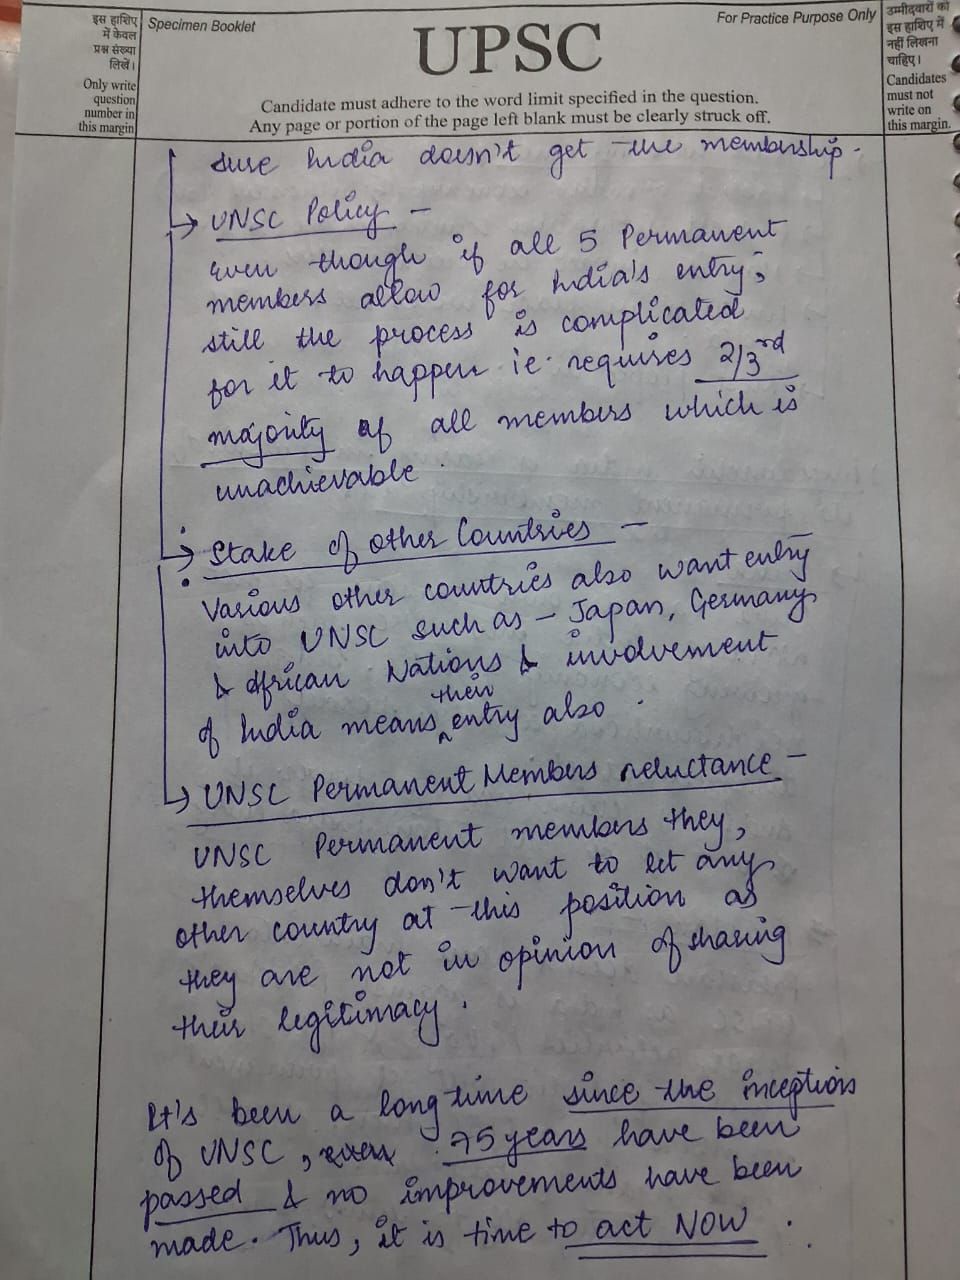 इस हाशिए
में केवल
प्रश्न संख्या
लिखें।
Only write
question
number in
this margin
Specimen Booklet
For Practice Purpose Only
UPSC
Candidate must adhere to the word limit specified in the question.
Any page or portion of the page left blank must be clearly struck off.
उम्मीदवारों को
इस हाशिए में
नहीं लिखना
चाहिए।
Candidates
must not
write on
this margin.
sure India doesn't get the membership.
→ UNSC Policy –
Even though if all 5 Permanent
members allow for India's entry,
still the process is complicated
for it to happen ie. requires 2/3rd
majority of all members which is
unachievable.
→ Stake of other Countries –
Various other countries also want entry
into UNSC such as – Japan, Germany
& African Nations & involvement
of India means their entry also.
→ UNSC Permanent Members reluctance –
UNSC Permanent members they,
themselves don't want to let any
other country at this position as
they are not in opinion of sharing
their legitimacy.
It's been a long time since the inception
of UNSC, 75 years have been
passed & no improvements have been
made. Thus, it is time to act NOW.